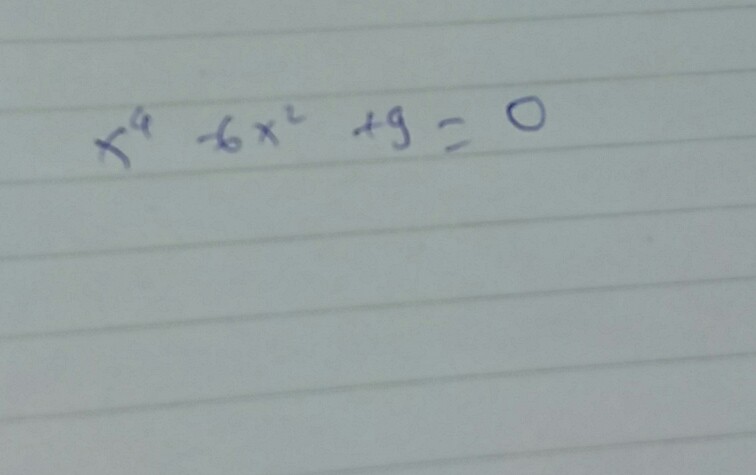 x⁴ -6x² +9 = 0